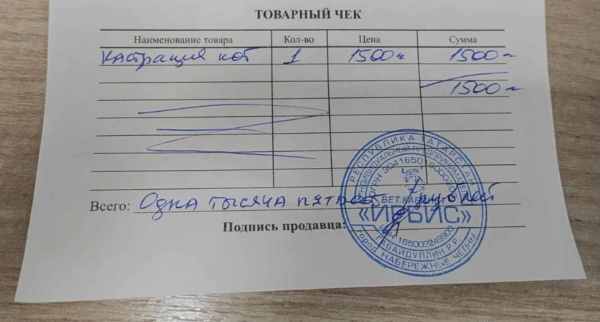 ТОВАРНЫЙ ЧЕК
Наименование товара Кол-во Цена Сумма
Кастрация кот 1 1500 1500
1500
Всего: Одна тысяча пятьсот рублей
Подпись продавца:
РЕСПУБЛИКА ТАТАРСТАН
ВЕТ.КАБИНЕТ
«ИРБИС»
город НАБЕРЕЖНЫЕ ЧЕЛНЫ